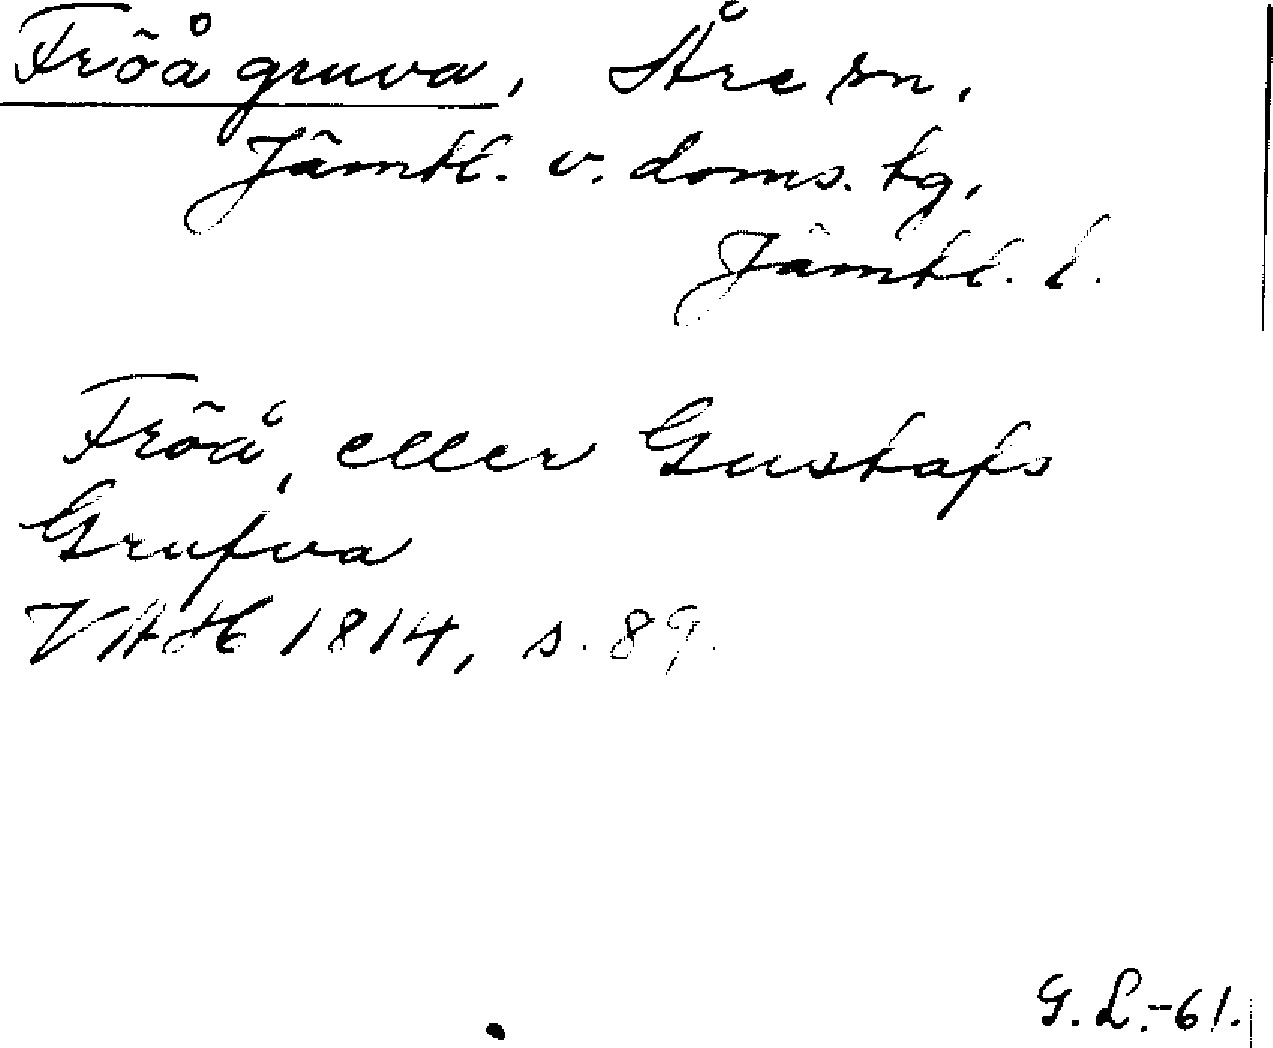 Fröå gruva, Åre sn.
Jämtl. v. doms. tg.
Jämtl. l.
Fröå, eller Gustafs
Grufva
VAH 1814, s. 89.
G. L.-61.